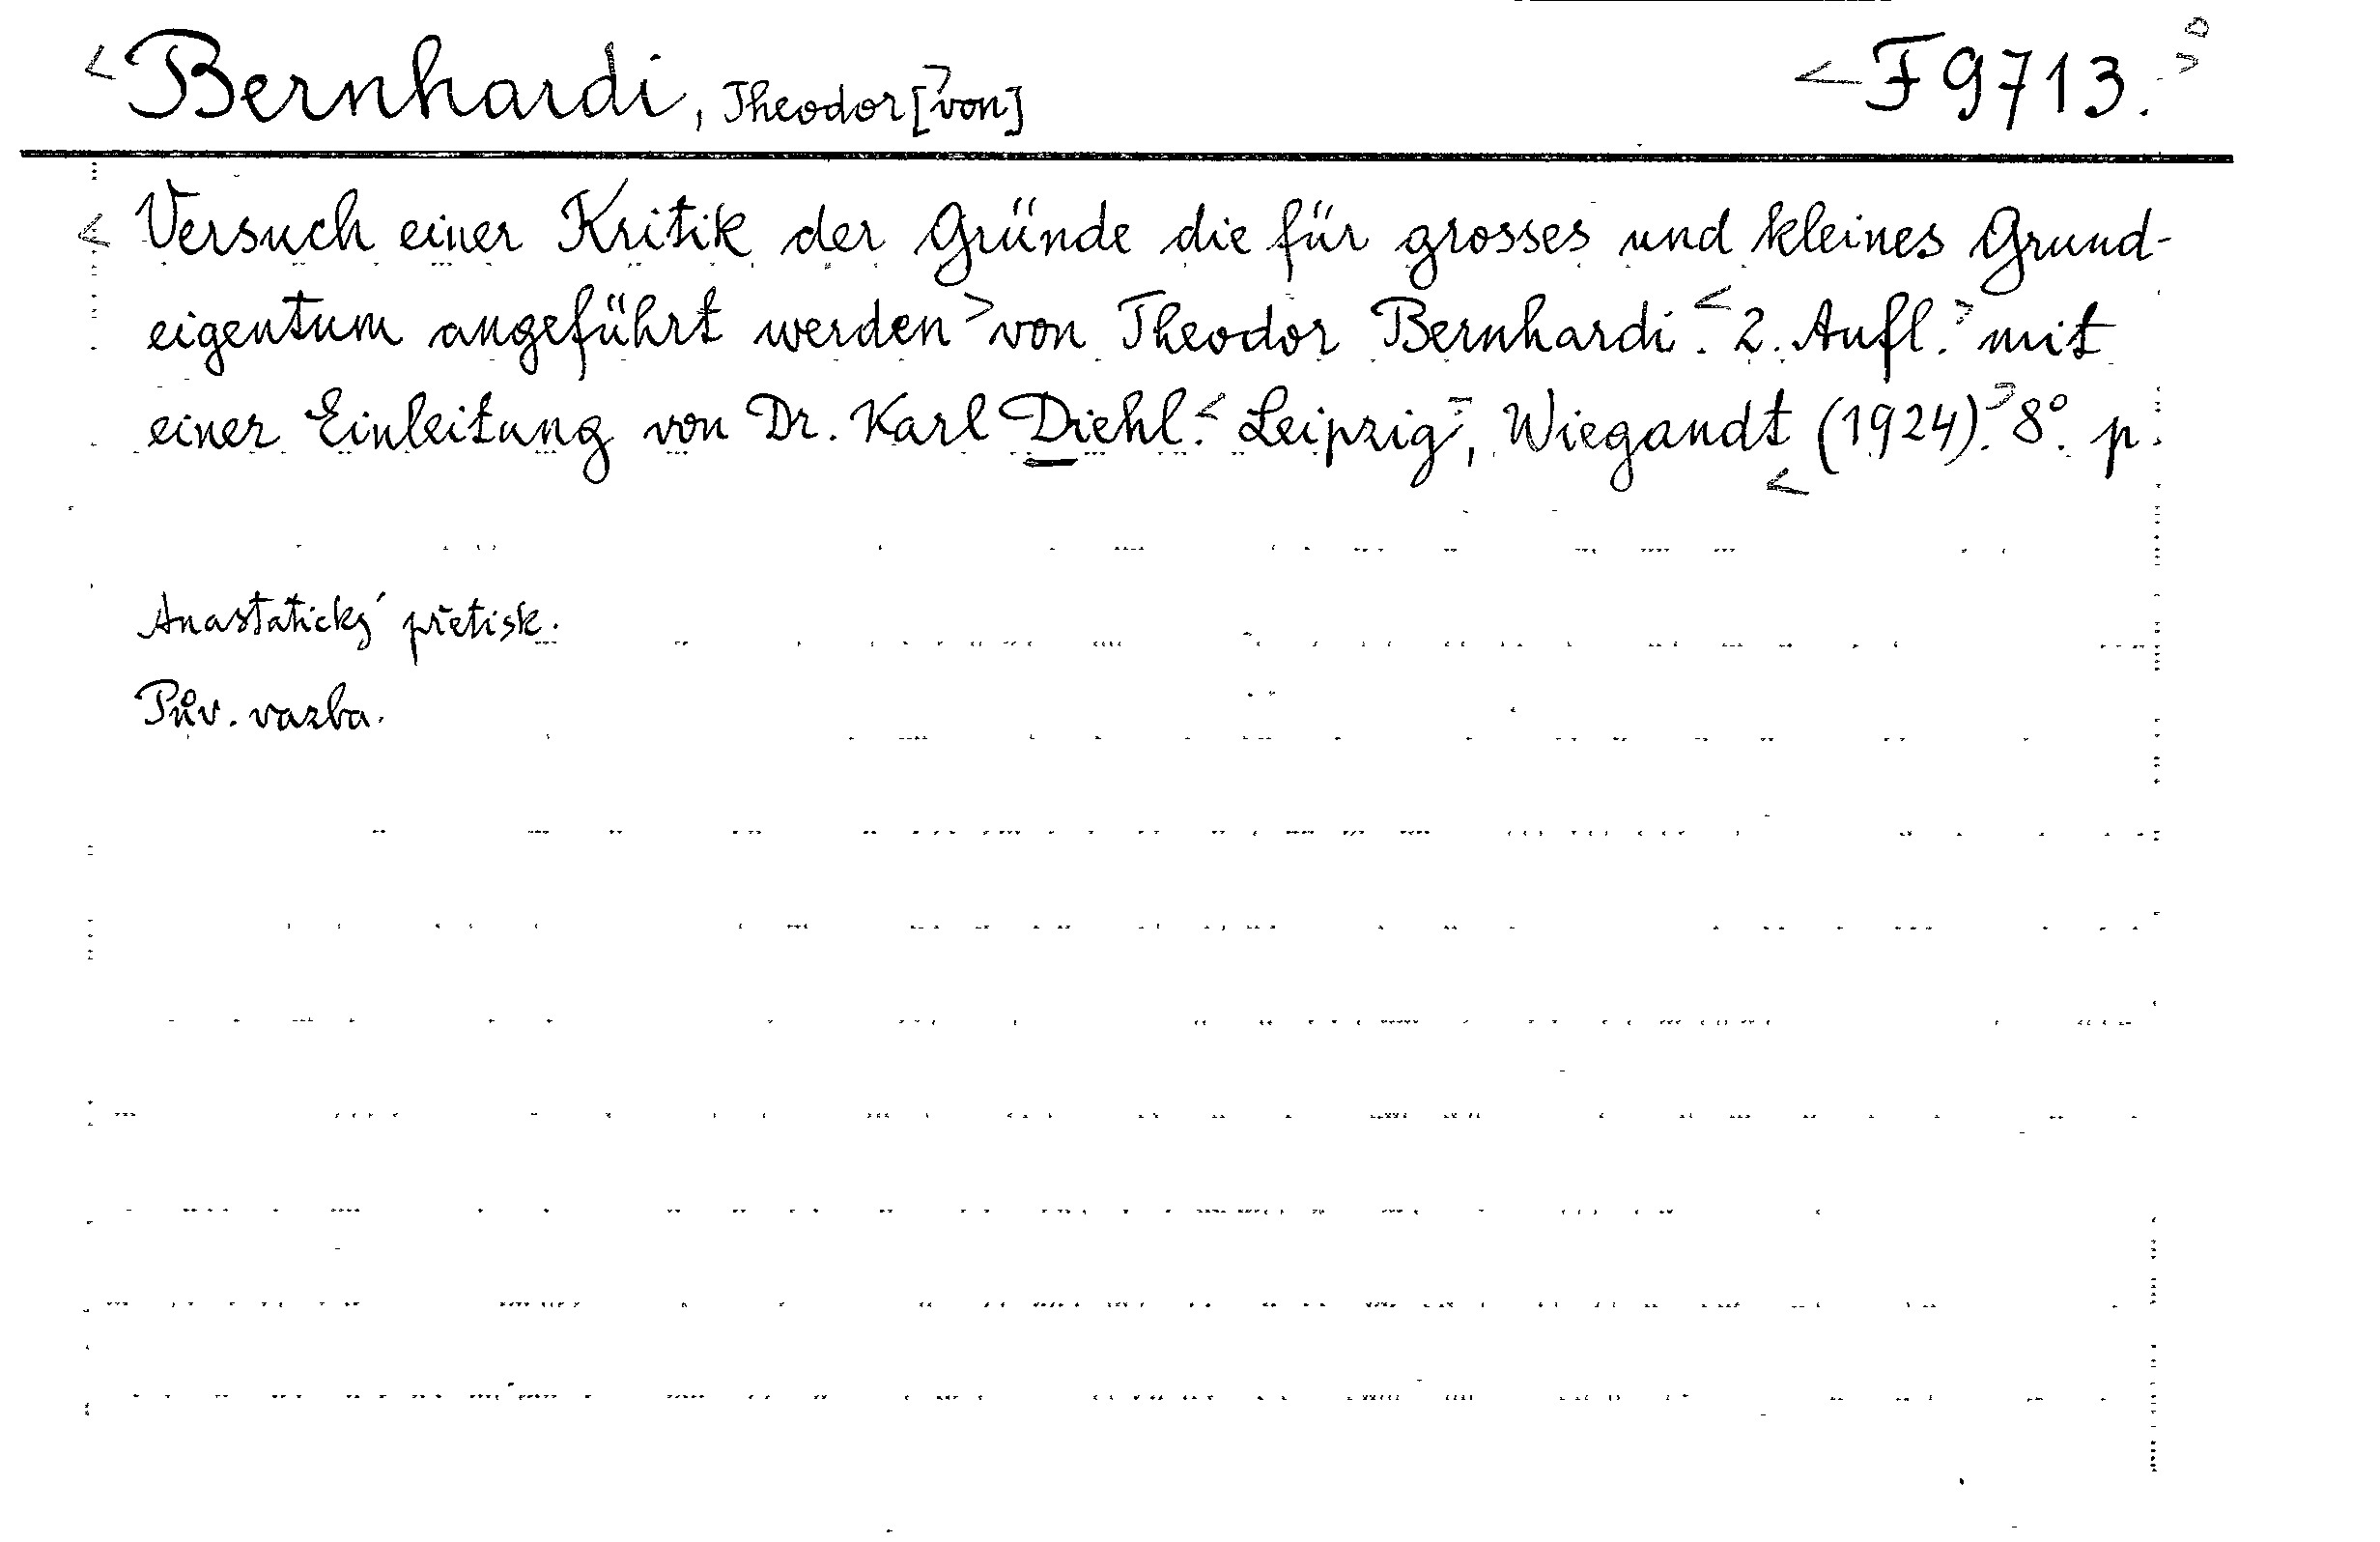 <Bernhardi, Theodor [>von] <F 9713.>
<Versuch einer Kritik der Gründe die für grosses und kleines Grund-
eigentum angeführt werden> von Theodor Bernhardi. <2. Aufl.> mit
einer Einleitung von Dr. Karl Diehl. <Leipzig>, Wiegandt <(1924).> 8°. p.
Anastatický přetisk.
Pův. vazba.